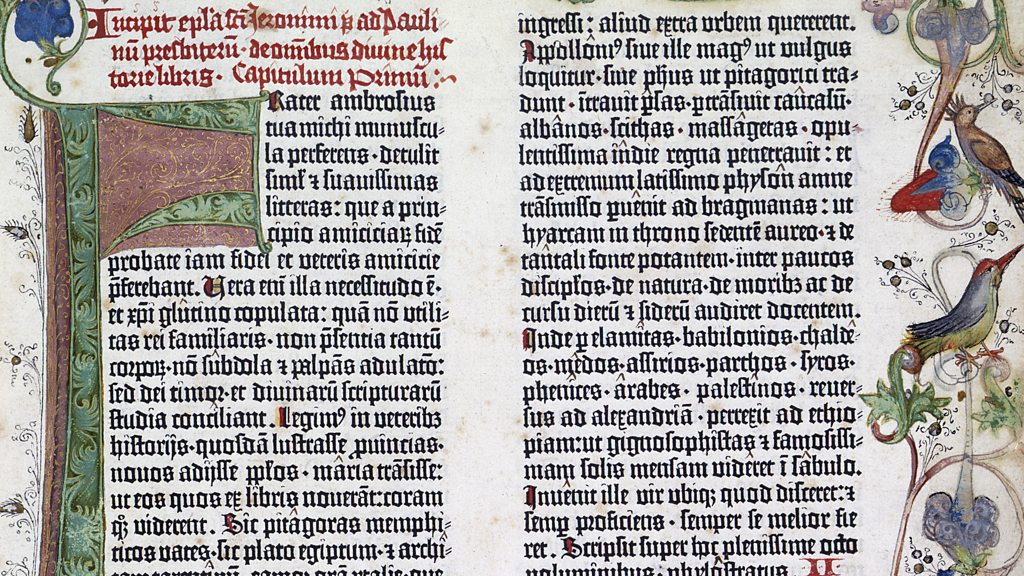 Incipit epl'a sci Jeronimi p̱ ad Pauli-
nū presbiterū · de omnibus divine his-
torie libris · Capitulum Primū:
Frater ambrosius
tua michi munuscu-
la perferens · detulit
siml' ⁊ suavissimas
litteras: que a prin-
cipio amiciciaꝝ fidē
probate iam fidei et veteris amicicie
p̄ferebant. Vera eni illa necessitudo ē ·
et xp̄i glutino copulata: quā nō utili-
tas rei familiaris · non p̄sentia tantū
corpoꝝ · nō subdola ⁊ palpās adulatō:
sed dei timor · et divinaꝝ scripturarū
studia conciliant. Legimꝰ in veteribꝫ
historijs · quosdā lustrasse ꝓvincias ·
novos adijsse ppl'os · maria trāsisse:
ut eos quos ex libris noverāt: coram
qꝫ viderent. Sic pitagoras memphi-
ticos vates · sic plato egiptum · ⁊ archi-
tam tarentinū · eamqꝫ oram ytalie · que
ingressi: aliud extra urbem quererent.
Apolloniꝰ sive ille magꝰ ut vulgus
loquitur · sive ph'us ut pitagorici tra-
dunt · ītravit p̄sas · ptrāsivit caucasū ·
albanos · scithas · massagetas · opu-
lentissima indie regna penetravit: et
ad extremum latissimo physon amne
trāsmisso puenit ad bragmanas: ut
hyarcam in throno sedentē aureo · ⁊ de
tantali fonte potantem · inter paucos
discipl'os · de natura · de moribꝫ ac de
cursu dierū ⁊ siderū audiret docentem.
Inde p elamitas · babilonios · chalde-
os · medos · assirios · parthos · syros ·
phenices · arabes · palestinos · rever-
sus ad alexandriā · perrexit ad ethio-
piam: ut gignosophistas ⁊ famosissi-
mam solis mensam videret ī sabulo.
Invenit ille vir ubiqꝫ quod disceret: ⁊
semp proficiens · semper se melior fie-
ret. Scripsit super hoc plenissime octo
voluminibus: phylostratus. II